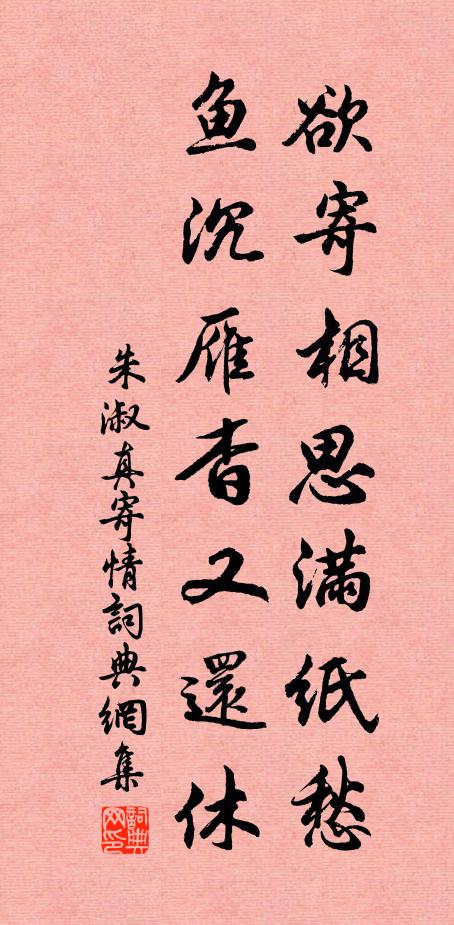 欲寄相思满紙愁
鱼沉雁杳又還休
朱淑真寄情詞典網集
詞典网印